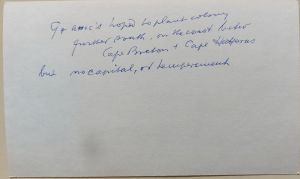 hoped to plant colony
further south, on the coast betw
Cape Breton + Cape Hatteras
but no capital, or temperament